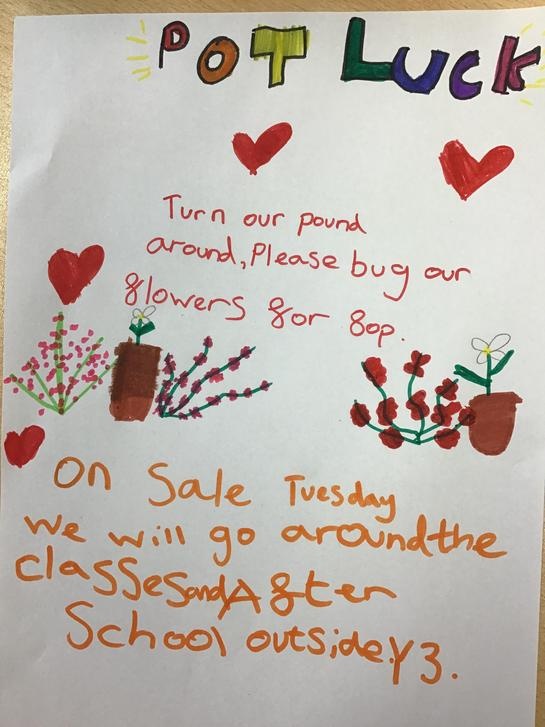 POT LUCK
Turn our pound
around, Please bug our
flowers for 80p.
On Sale Tuesday
we will go around the
classes and After
School outside Y3.